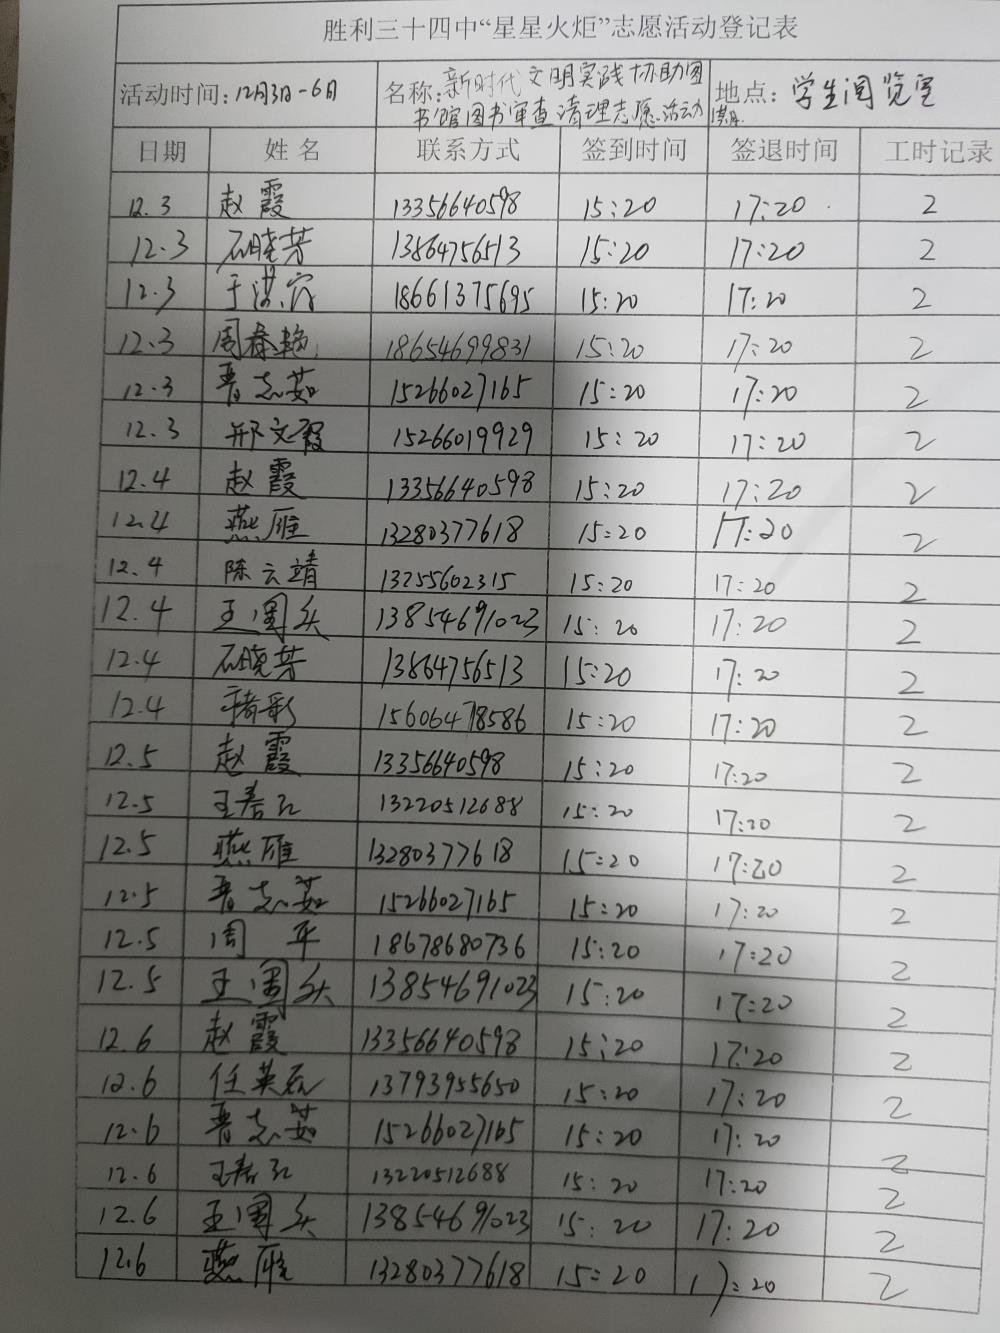 胜利三十四中“星星火炬”志愿活动登记表
活动时间：12月3日-6日 名称：新时代文明实践协助图 地点：学生阅览室
书馆图书审查清理志愿活动
日期 姓名 联系方式 签到时间 签退时间 工时记录
12.3 赵霞 13356640598 15:20 17:20 2
12.3 石晓芳 13864756513 15:20 17:20 2
12.3 于洪 18661375695 15:20 17:20 2
12.3 周春艳 18654699831 15:20 17:20 2
12.3 晋志茹 15266027165 15:20 17:20 2
12.3 邢文霞 15266019929 15:20 17:20 2
12.4 赵霞 13356640598 15:20 17:20 2
12.4 燕雁 13280377618 15:20 17:20 2
12.4 陈云靖 13255602315 15:20 17:20 2
12.4 王 13854691023 15:20 17:20 2
12.4 石晓芳 13864756513 15:20 17:20 2
12.4 15606478586 15:20 17:20 2
12.5 赵霞 13356640598 15:20 17:20 2
12.5 王春红 13220512688 15:20 17:20 2
12.5 燕雁 13280377618 15:20 17:20 2
12.5 晋志茹 15266027165 15:20 17:20 2
12.5 周平 18678680736 15:20 17:20 2
12.5 王 13854691023 15:20 17:20 2
12.6 赵霞 13356640598 15:20 17:20 2
12.6 任英 13793955650 15:20 17:20 2
12.6 晋志茹 15266027165 15:20 17:20 2
12.6 王春红 13220512688 15:20 17:20 2
12.6 王 13854691023 15:20 17:20 2
12.6 燕雁 13280377618 15:20 17:20 2